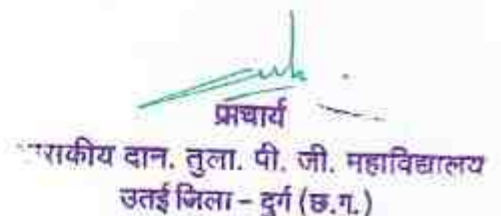 प्राचार्य
दान. तुला. पी. जी. महाविद्यालय
उतई जिला - दुर्ग (छ.ग.)